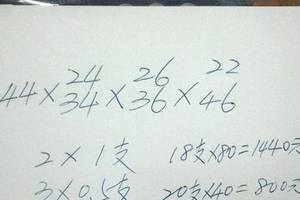 24 26 22
44×34×36×46
2×1支 18支×80=1440元
3×0.5支 20支×40=800元